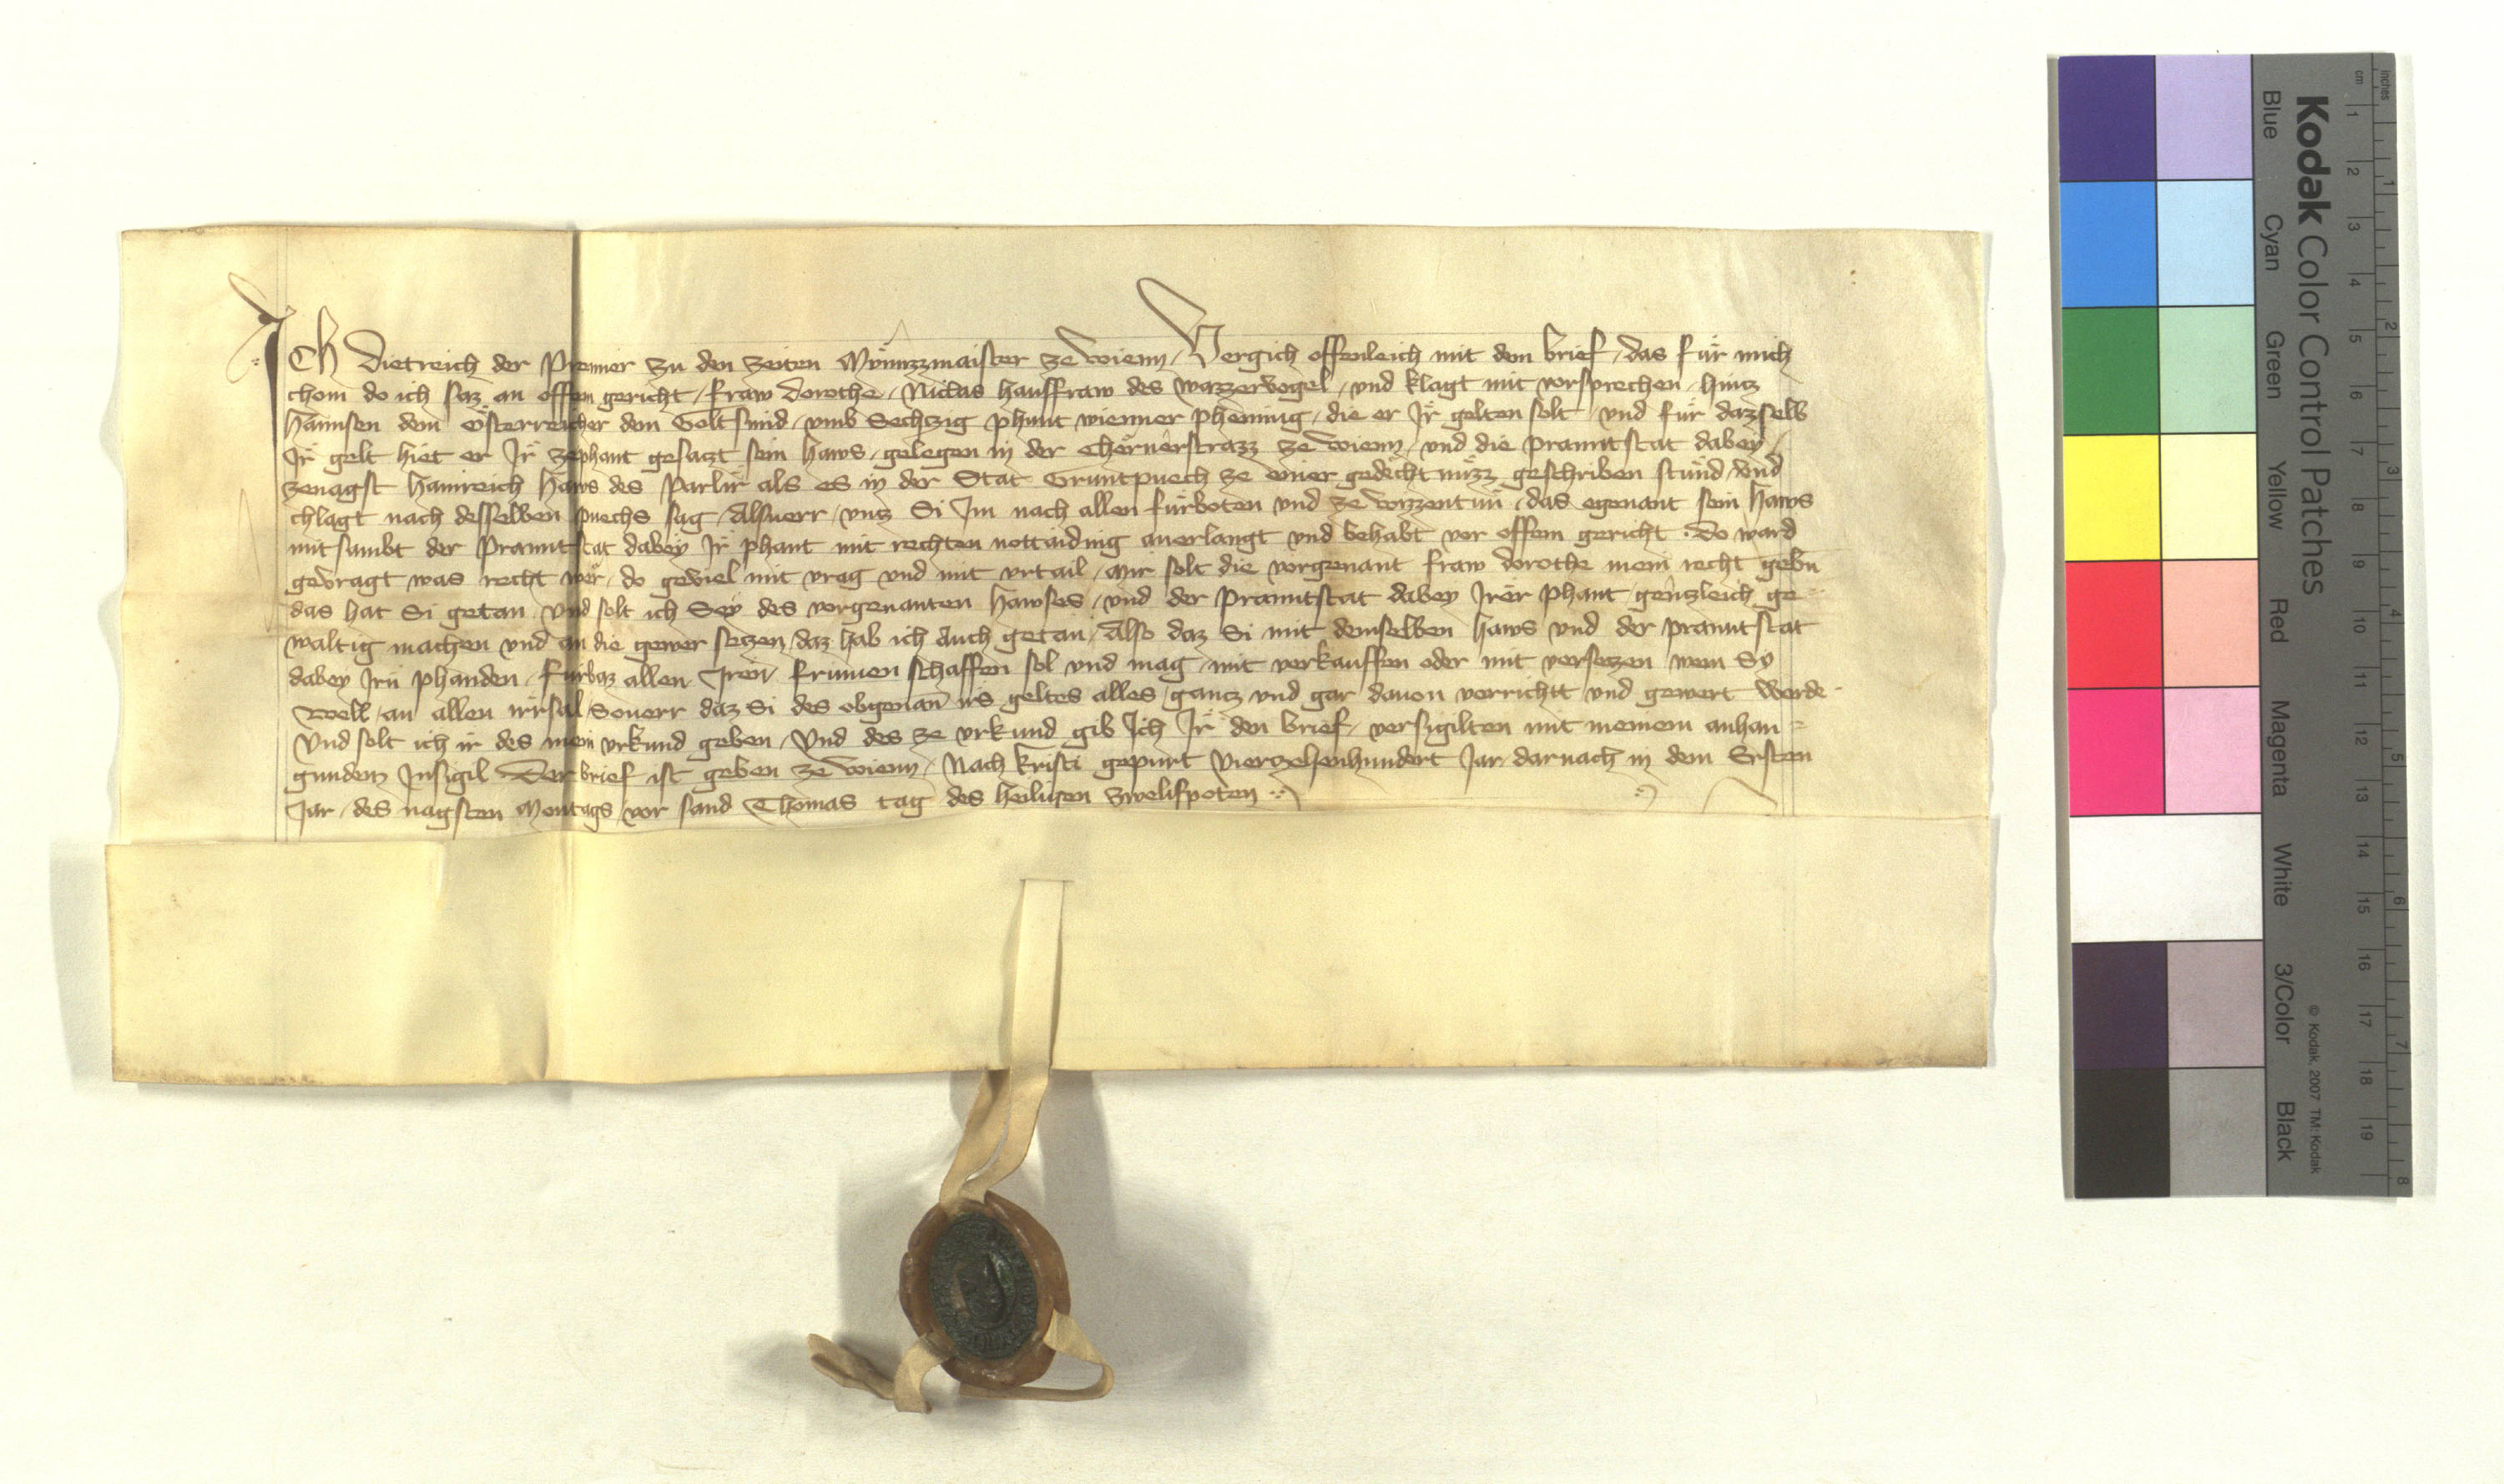 ICh Dietreich der Premer zu den zeiten Münzzmaister ze Wienn / Vergich offenleich mit dem brief / das für mich
chom do ich saz an offem gericht / fraw Dorothe / Niclas hausfraw des Wazzervogel / und klagt mit vorsprechen / hintz
Hannsen dem Österreicher dem Goltsmid / umb Sechzig phunt wienner phenning / die er Ir gelten solt / und für dazselb
Ir gelt hiet er Ir ze phant gesatzt sein haws / gelegen in der Chërnerstrazz ze Wienn / und die pranntstat dabey /
zenagst Hainreich haws des Parlir als es in der Stat Gruntpuech ze einer gedëchtnüzz geschriben stünd / Und
chlagt nach desselben puechs sag / Alsuerr / untz Si Im nach allen fürboten und ze wizzentun / das egenant sein haws
mitsambt der Pranntstat dabey Ir phant mit rechten nottaiding anerlangt und behabt vor offem gericht . Do ward
gevragt was recht wër / do geviel mit vrag und mit urtail / Mir solt die vorgenant fraw Dorothe mein recht gebn
das hat Si getan / Und solt ich Sey des vorgenanten hawses / und der Pranntstat dabey Irër phant / gëntzleich ge=
waltig machen und an die gewer setzen / daz hab ich Auch getan / Also daz Si mit demselben haws und der pranntstat
dabey Irn phanden / fürbaz allen Iren frumen schaffen sol und mag / mit verkauffen oder mit versetzen wem Sy
well / an allen irrsal / Souerr daz Si des obgenan irs geltes alles / gantz und gar dauon verrichtt und gewert werde
Und solt ich ir des mein urkund geben / Und des ze urkund gib Ich Ir den brief / versigilten mit meinem anhan=
gundem Insigil Der brief ist geben ze Wienn / Nach Kristi gepurt Vierzehenhundert Jar / darnach in dem Ersten
Jar / des nagsten Montags / vor sand Thomas tag des heiligen zwelifpoten
Kodak Color Control Patches
Blue Cyan Green Yellow Red Magenta White 3/Color Black
© Kodak, 2007 TM: Kodak
inches 1 2 3 4 5 6 7 8
cm 1 2 3 4 5 6 7 8 9 10 11 12 13 14 15 16 17 18 19